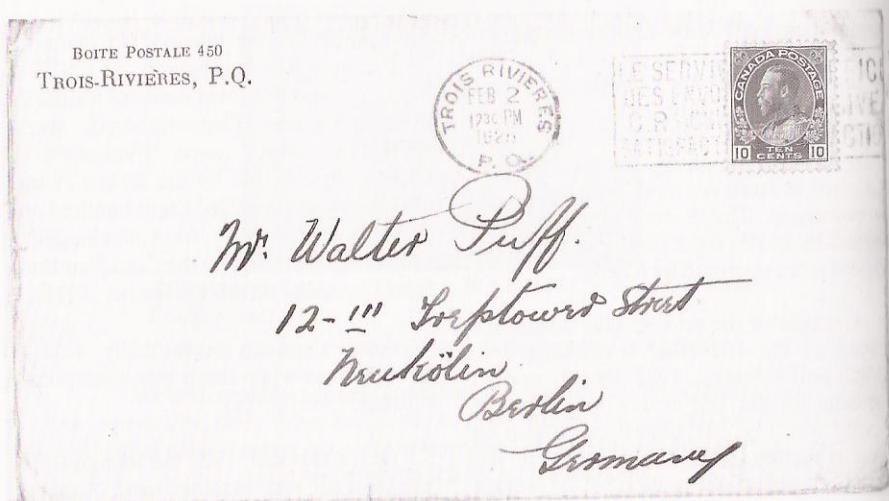 BOITE POSTALE 450
TROIS-RIVIERES, P.Q.
TROIS RIVIERES
FEB 2
1230 PM
P. Q.
LE SERVI
DES
SATISFACT
CANADA POSTAGE
10 TEN CENTS 10
Mr. Walter Puff.
12-III Treptower Street
Neukölln
Berlin
Germany